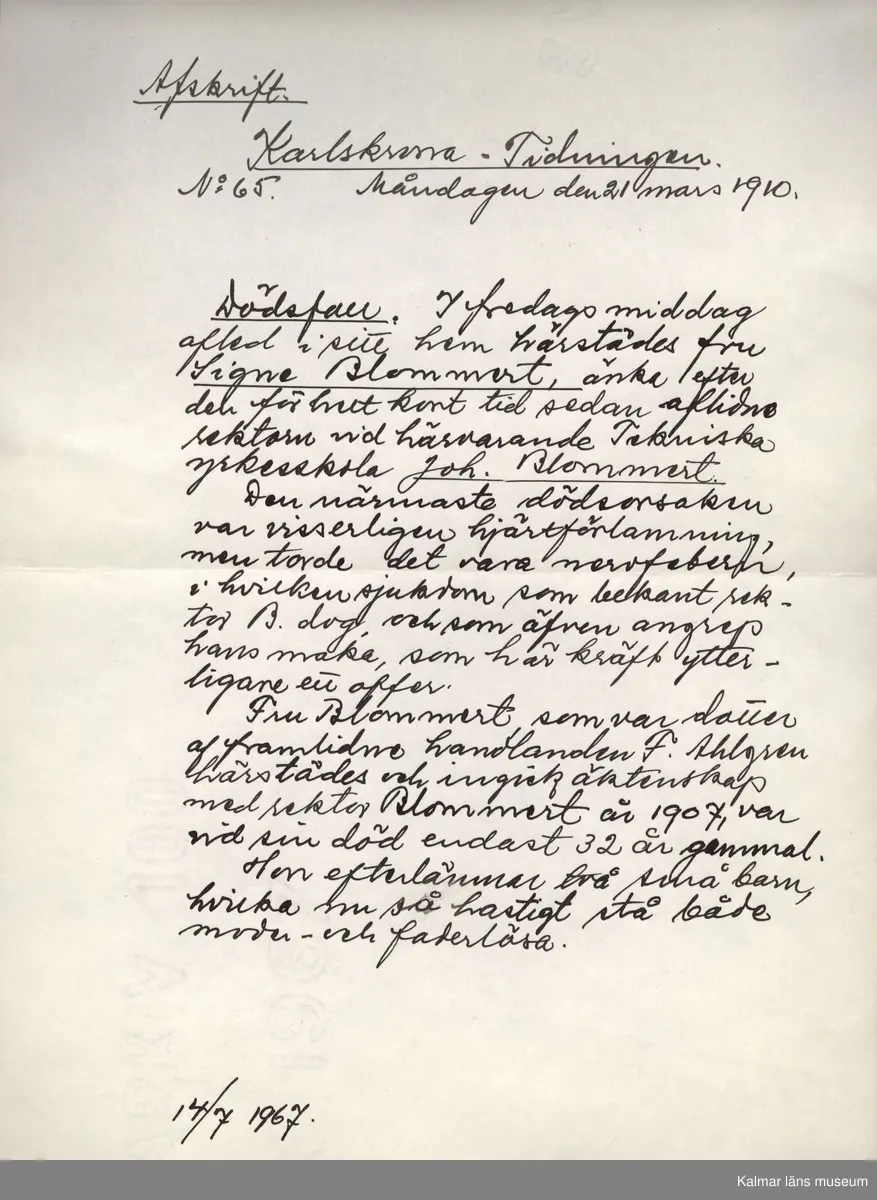 Afskrift.
Karlskrona-Tidningen.
No 65. Måndagen den 21 mars 1910.
Dödsfall. I fredags middag
afled i sitt hem härstädes fru
Signe Blommert, änka efter
den för helt kort tid sedan aflidne
rektorn vid härvarande Tekniska
yrkesskola Joh. Blommert.
Den närmaste dödsorsaken
var visserligen hjärtförlamning,
men torde det vara nervfebern,
i hvilken sjukdom som bekant rek-
tor B. dog, och som äfven angrep
hans maka, som här kräft ytter-
ligare ett offer.
Fru Blommert, som var dotter
af framlidne handlanden F. Ahlgren
härstädes och ingick äktenskap
med rektor Blommert år 1907, var
vid sin död endast 32 år gammal.
Hon efterlämnar två små barn,
hvilka nu så hastigt stå både
moder- och faderlösa.
14/7 1967.
Kalmar läns museum